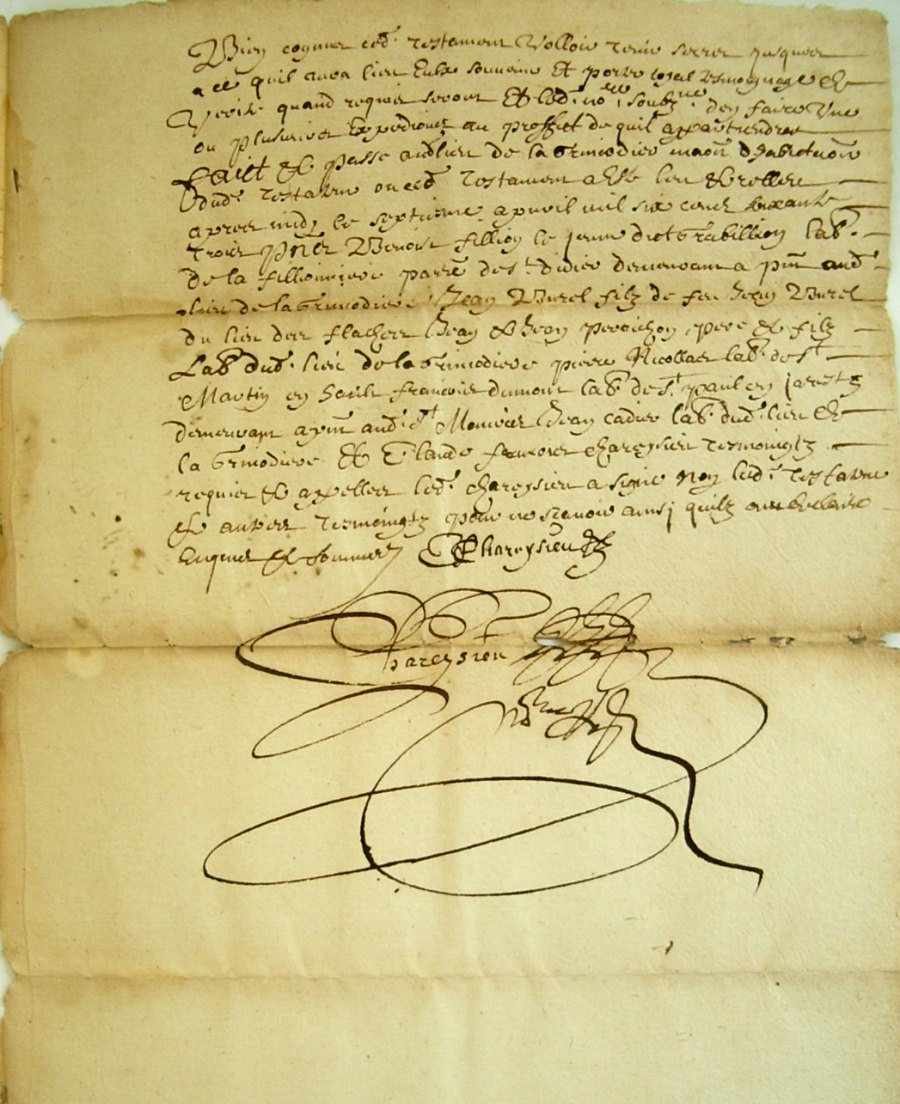 Bien cogneu led. testament Volloir tenir secret jusques
a ce quil aura lieu Eulx souvenir Et porter loyal tesmoignage de
Verité quand requis seront Et led. no.re soubz.né den faire Une
ou plusieures Expedicions au proffict de quil appartiendra
Faict & passé aud. lieu de la Grimodiere maison dhabitation
dud. testateur ou led. testament a Esté leu &
apres midy le septiesme apvril mil six cens soixante
trois pnts Benoist fillion le jeune dict Grabillion lab.
de la fillionniere parre de st. didier demeurant a pnt aud.
lieu de la Grimodiere Jean Burel filz de feu Jean Burel
du lieu des flaches Jean & Jean perrichon pere & filz
Lab. dud. lieu de la Grimodiere pierre Nicollas lab. de st
Martin en francois dumont lab. de st paul en jarestz
demeurant a pnt aud. st Jean cadier lab. dud. lieu de
la Grimodiere & Claude francois chareysieu tesmoingtz
requis & appelles led. chareysieu a signe Non led. testateur
& autres tesmoingtz pour ne scavoir ainsi quilz ont declaire
Enquis & sommes Chareysieu
Chareysieu